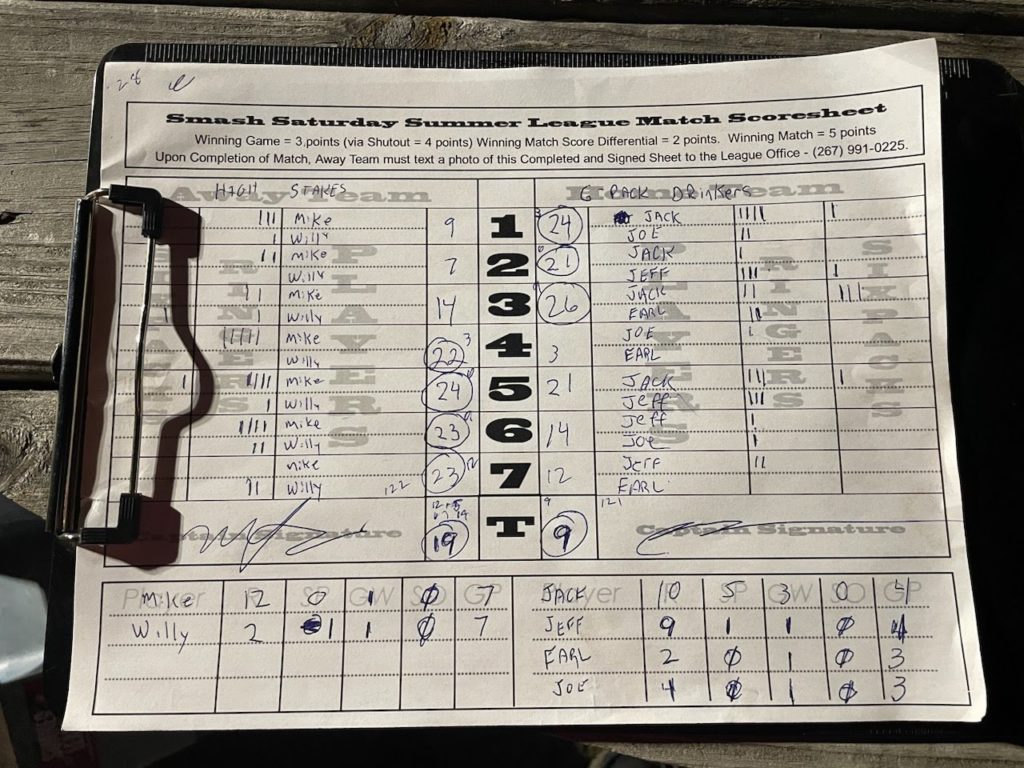 28
Smash Saturday Summer League Match Scoresheet
Winning Game = 3 points (via Shutout = 4 points) Winning Match Score Differential = 2 points. Winning Match = 5 points
Upon Completion of Match, Away Team must text a photo of this Completed and Signed Sheet to the League Office - (267) 991-0225.
Away Team HIGH STAKES Home Team 6 PACK DRINKERS
SIX PACKS RINGERS PLAYERS PLAYERS RINGERS SIX PACKS
III Mike 9 1 24 JACK IIII I
I Willy JOE II
II Mike 7 2 21 JACK I
Willy JEFF III I
II Mike 14 3 26 JACK II III
I I Willy EARL I
IIIII Mike 22 3 4 3 JOE I
Willy EARL
I IIII Mike 24 5 21 JACK III I
I Willy Jeff III
IIII Mike 23 6 14 Jeff I
II Willy Joe I
Mike 23 7 12 JEFF II
II Willy 122 EARL
Captain Signature 19 T 9 9 121 Captain Signature
Player R SP GW SO GP Player R SP GW SO GP
Mike 12 0 1 Ø 7 JACK 10 5 3 0 4
Willy 2 1 1 Ø 7 JEFF 9 1 1 Ø 4
EARL 2 Ø 1 Ø 3
JOE 4 Ø 1 Ø 3